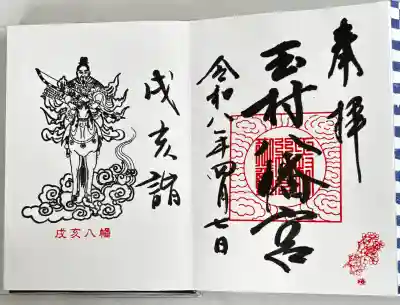 奉拝
玉村八幡宮
令和八年四月七日
戌亥詣
戌亥八幡